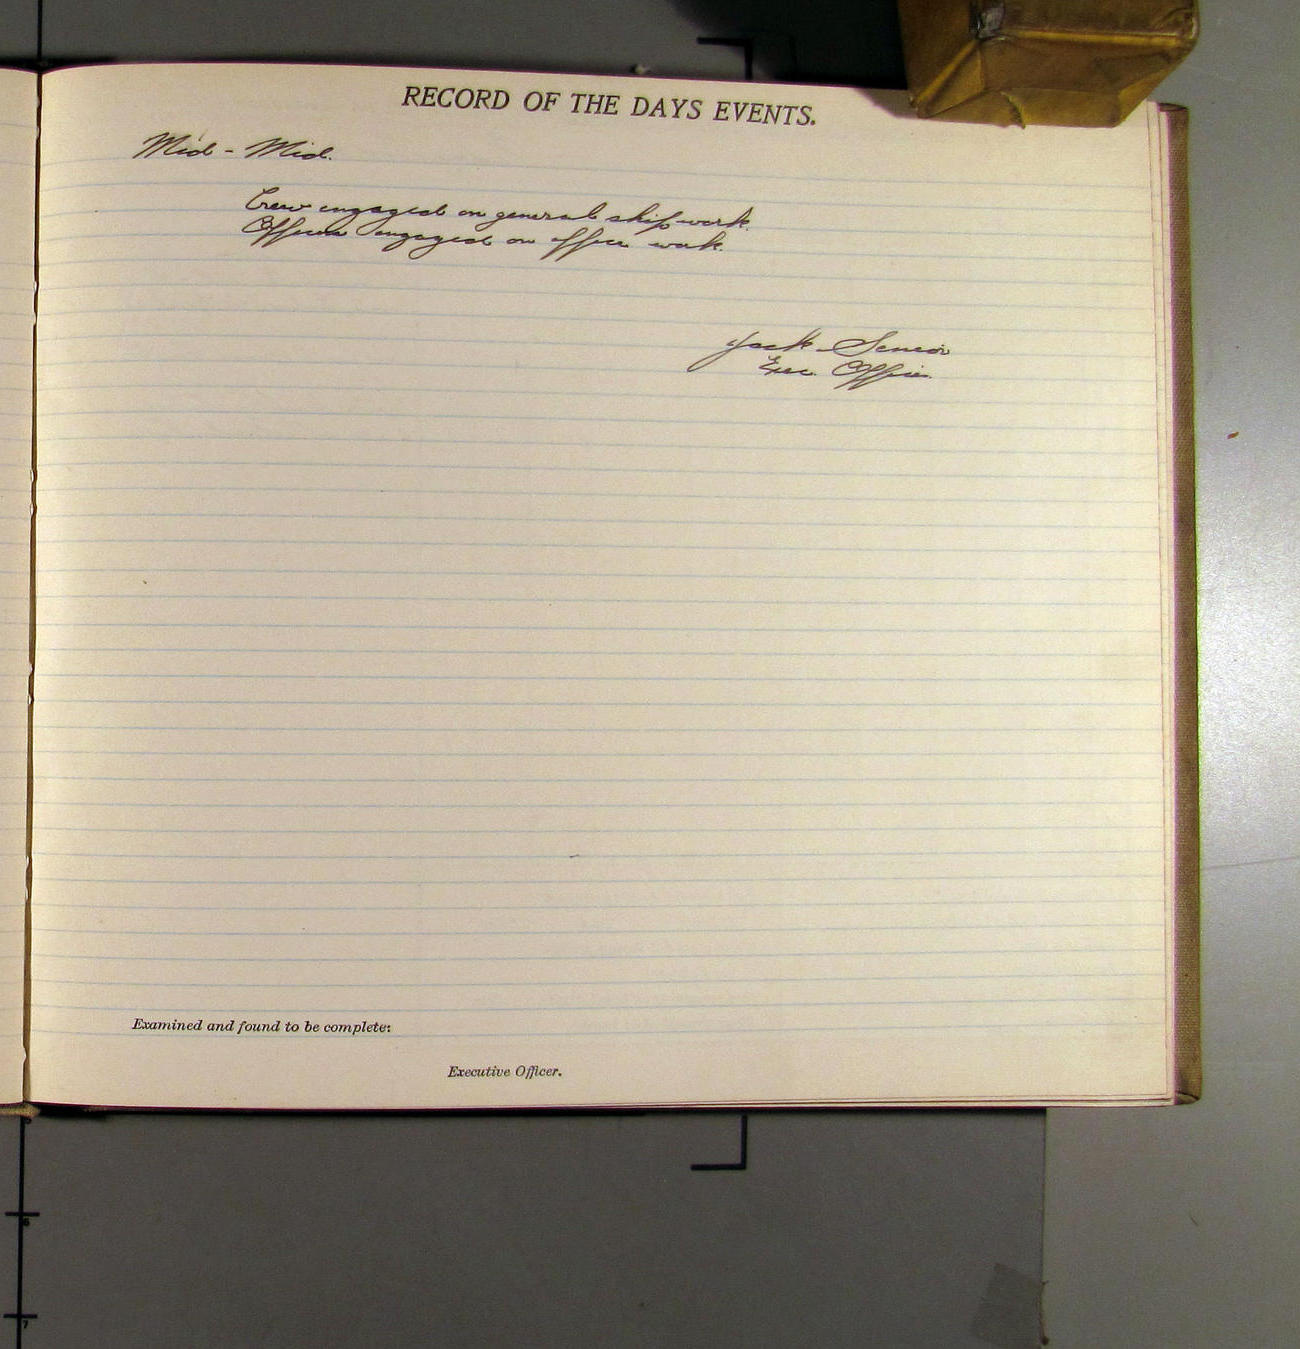 RECORD OF THE DAYS EVENTS.
Mid - Mid.
Crew engaged on general ship work.
Officers engaged on office work.
Jack Senior
Exec. Officer.
Examined and found to be complete:
Executive Officer.
6
7